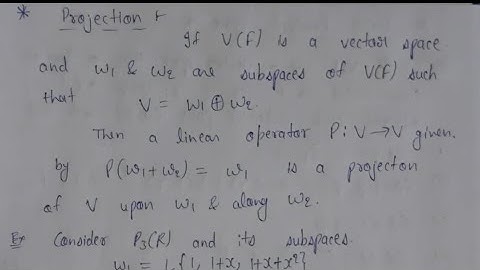 * Projection :-
If V(F) is a vector space
and W1 & W2 are subspaces of V(F) such
that V = W1 ⊕ W2.
Then a linear operator P: V → V given.
by P(w1+w2) = w1 is a projecton
of V upon W1 & along W2.
Ex Consider P3(R) and its subspaces.
W1 = L{1, 1+x, 1+x+x²}